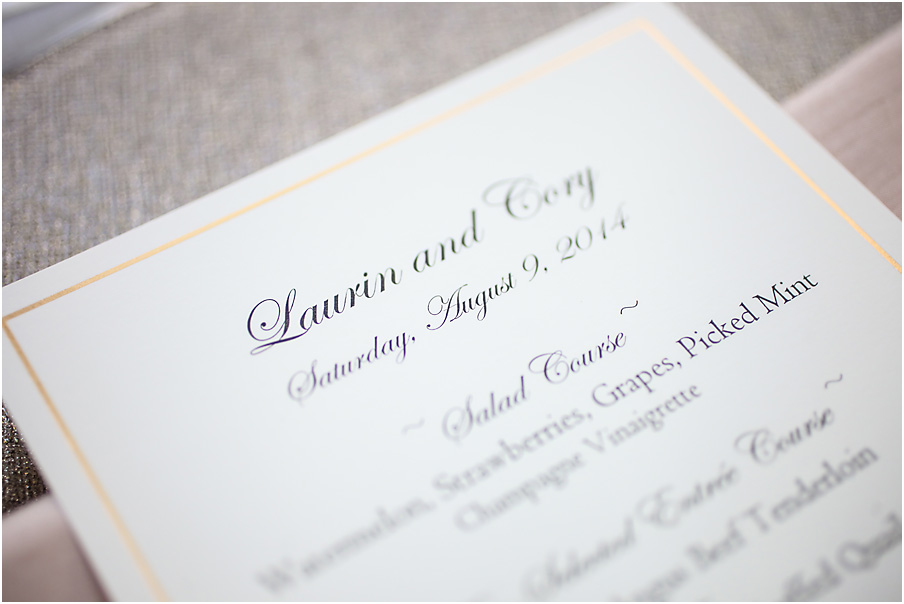 Laurin and Cory
Saturday, August 9, 2014
~ Salad Course ~
Watermelon, Strawberries, Grapes, Picked Mint
Champagne Vinaigrette
Selected Entrée Course ~
Beef Tenderloin